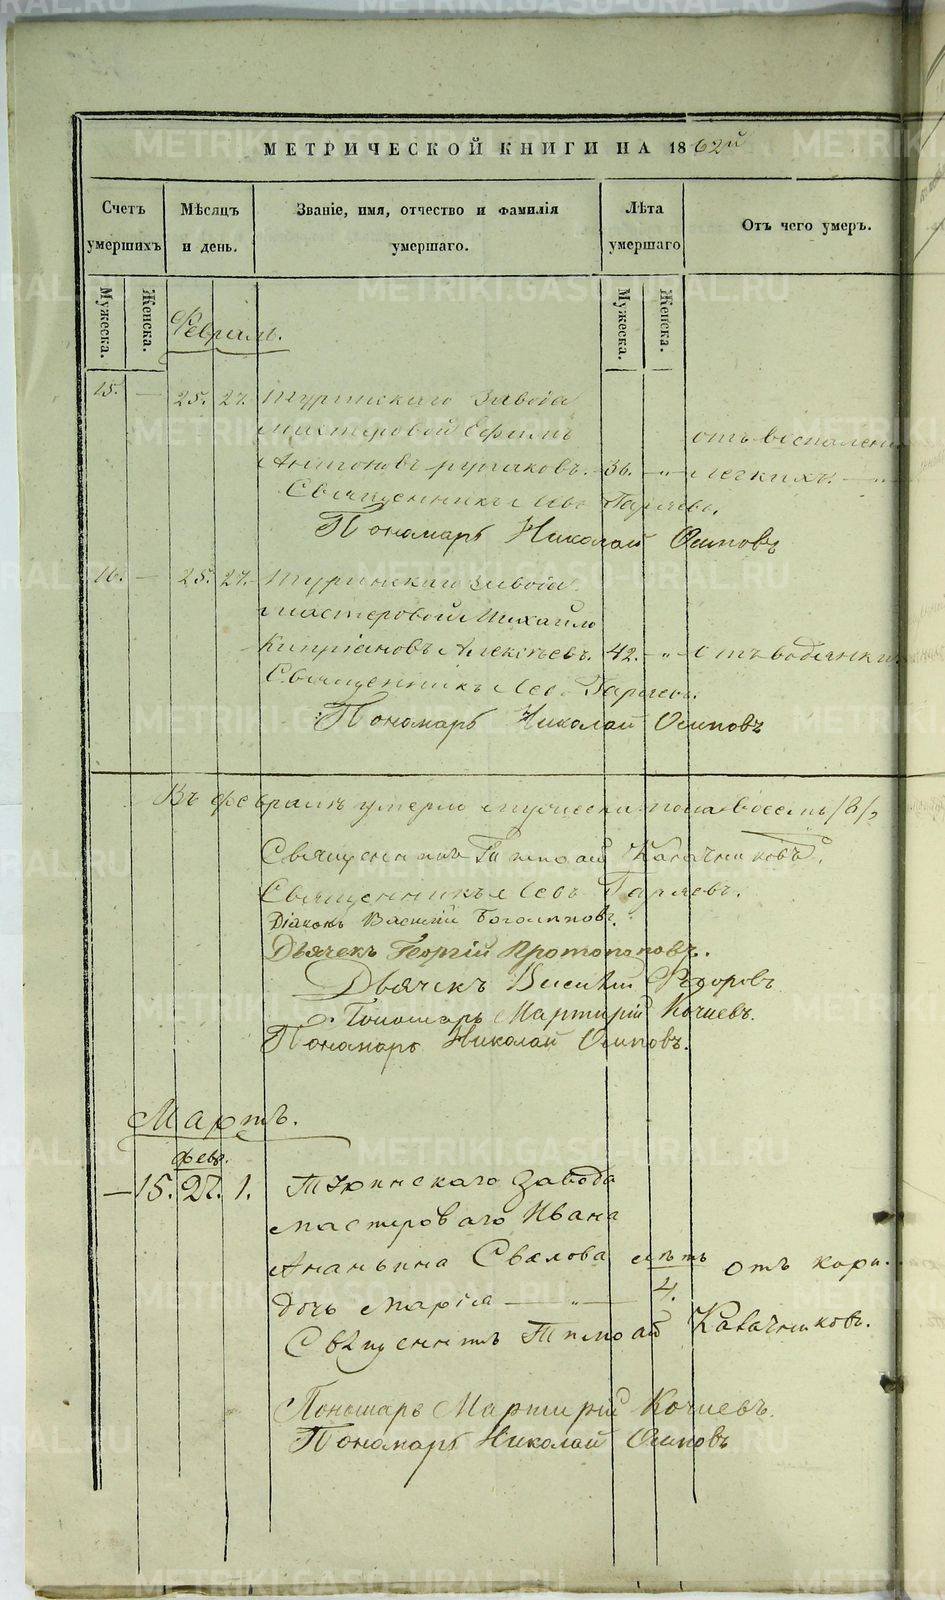 МЕТРИЧЕСКОЙ КНИГИ НА 1862й
Счетъ умершихъ
Мѣсяцъ и день.
Званіе, имя, отчество и фамилія умершаго.
Лѣта умершаго
Отъ чего умеръ.
Мужеска.
Женска.
Мужеска.
Женска.
Февраль.
15. — 25. 27. Туринскаго завода
мастеровой Ефимъ отъ воспаленія
Антоновъ 36. — „ легкихъ. — „
Священникъ Левъ Гаряевъ.
Пономарь Николай Осиповъ
16. — 25. 27. Туринскаго завода
мастеровой Михайло
Кипріановъ Алексѣевъ. 42. — „ Отъ водянки
Священникъ Лев Гаряевъ.
Пономарь Николай Осиповъ
Въ февралѣ умерло мужеска пола восемь /8/
Священник Тимофей Казачниковъ.
Священникъ Левъ Гаряевъ.
Діаконъ Василій
Дьячекъ Георгій Протопоповъ.
Дьячекъ Василій Ѳедоровъ
Пономарь Мартирій Кочневъ.
Пономарь Николай Осиповъ.
Мартъ.
Фев.
— 15. 27. 1. Туринскаго Завода
мастероваго Ивана
Ананьина лѣтъ Отъ кори.
дочь Марія — „ — 4.
Священникъ Тимофей Казачниковъ.
Пономарь Мартирій Кочневъ.
Пономарь Николай Осиповъ
METRIKI.GASO-URAL.RU